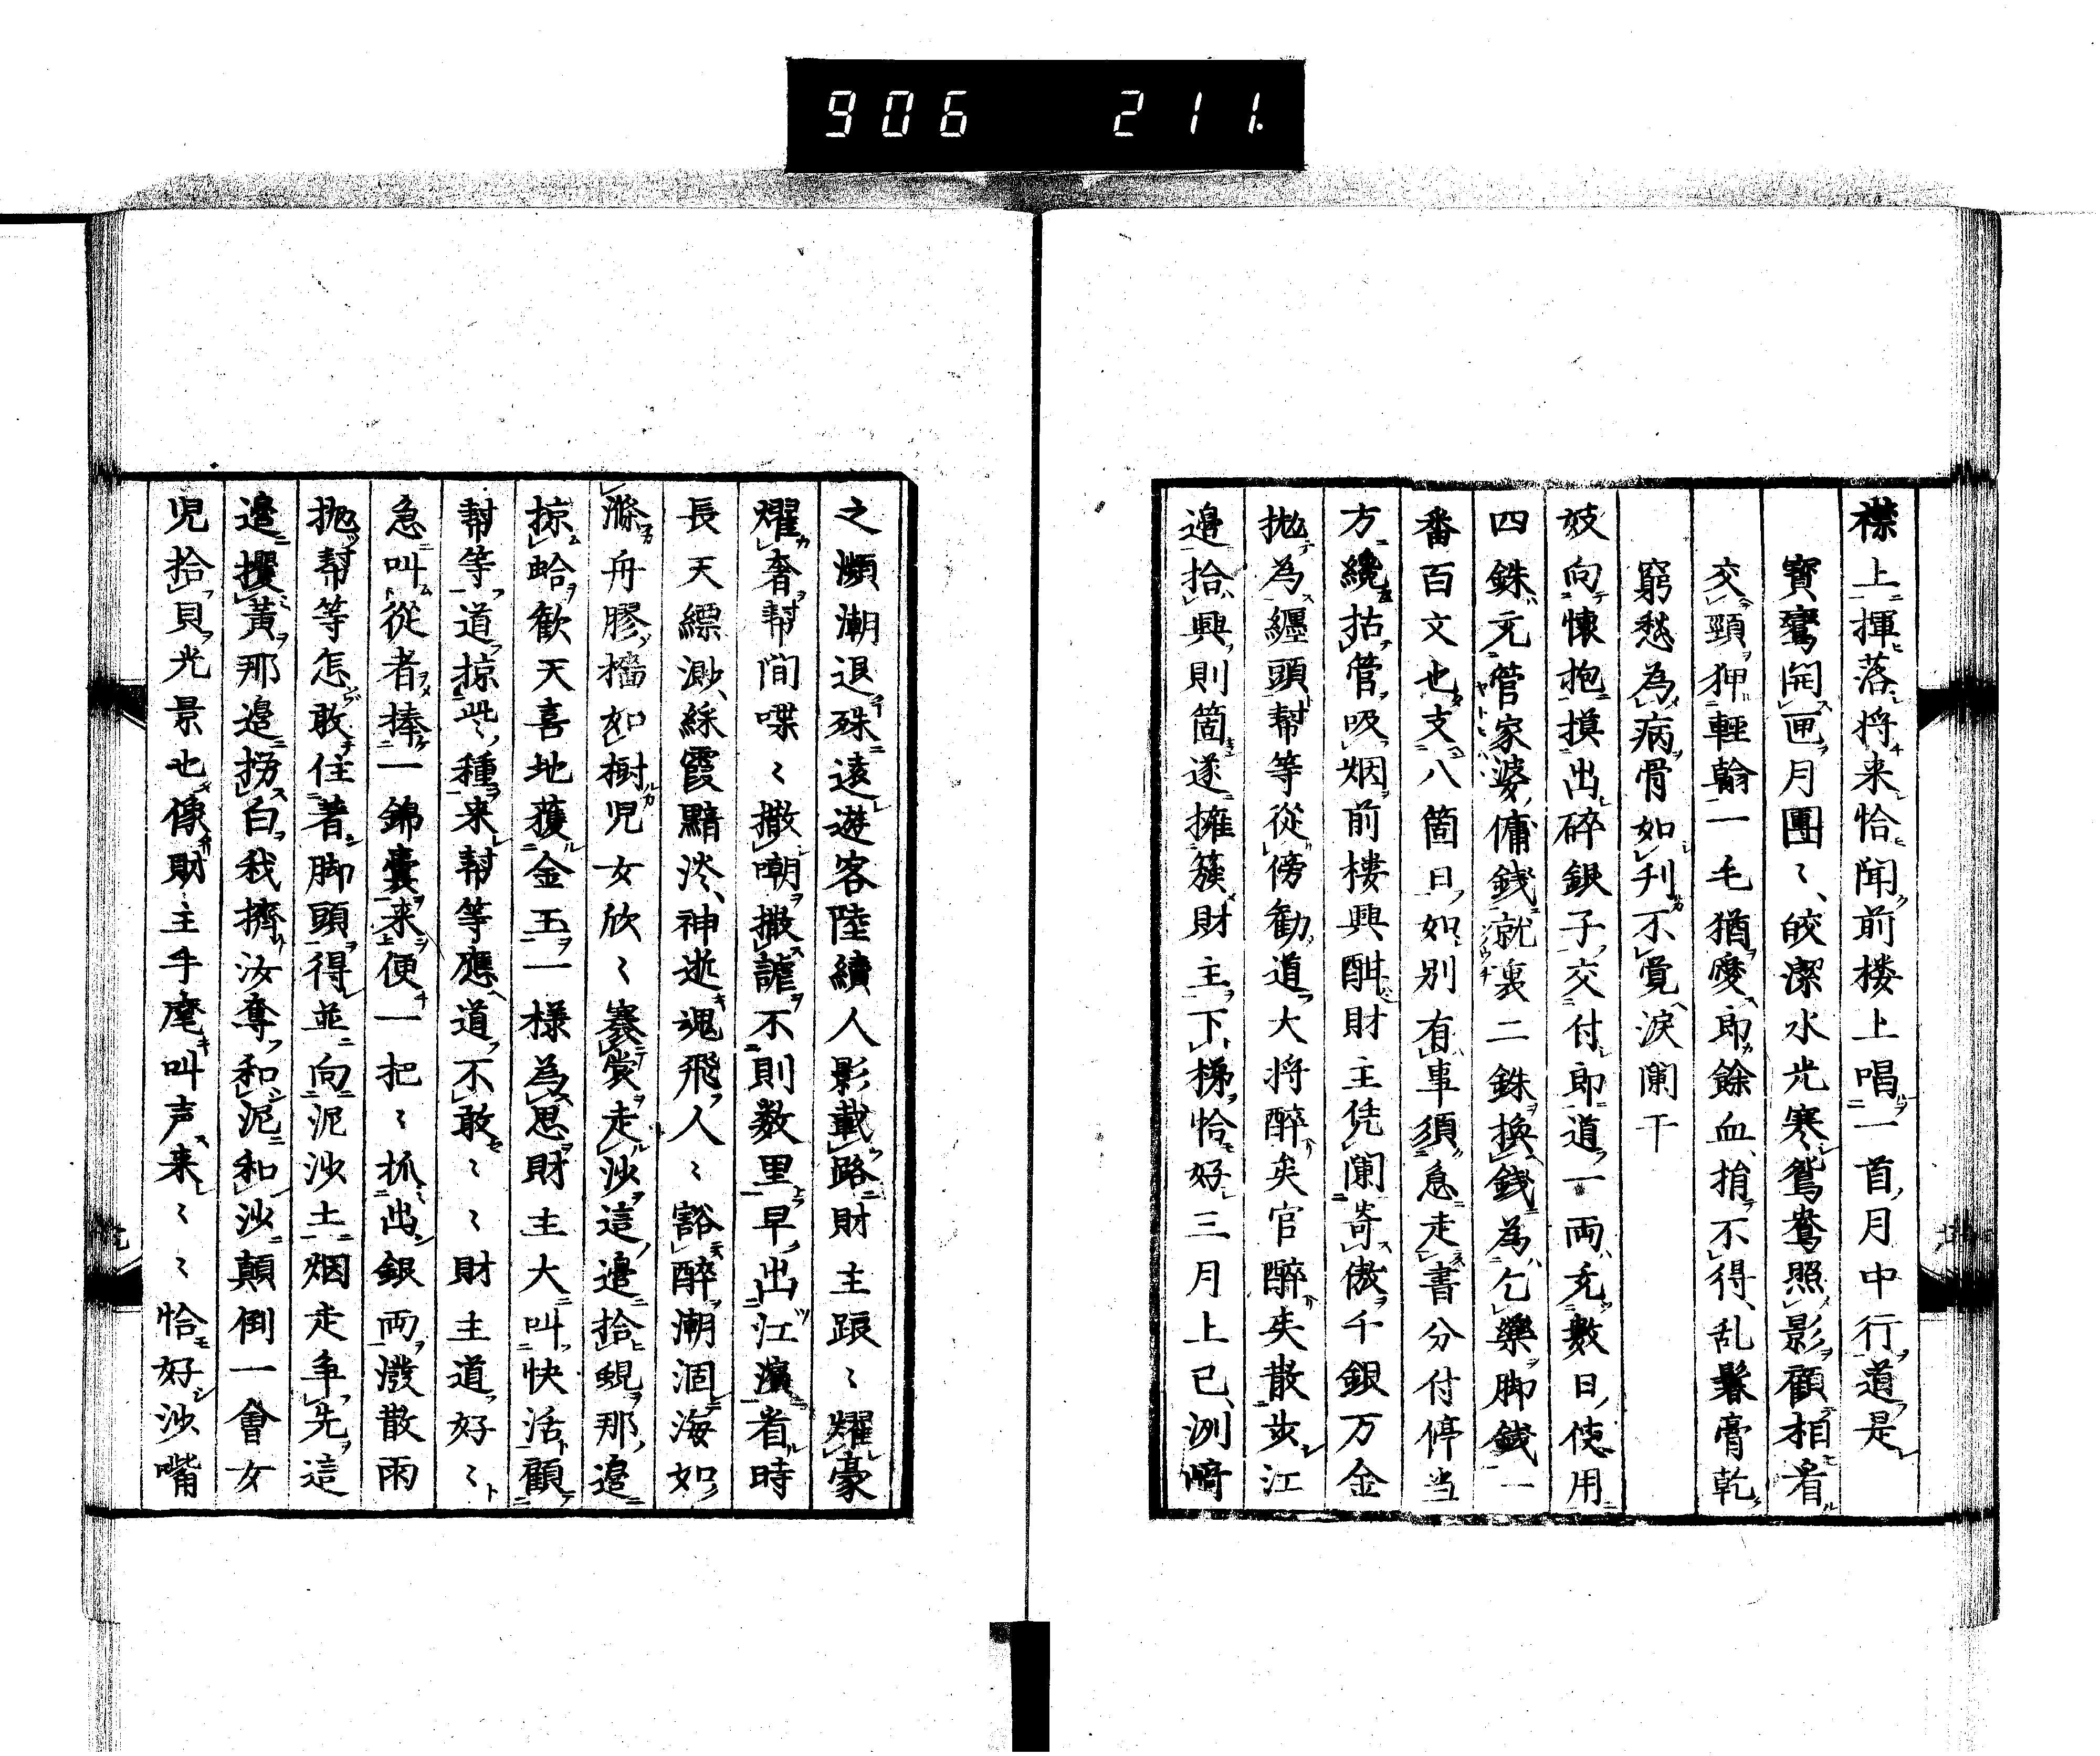 906 211.
襟上揮落将来恰聞前楼上唱一首月中行道是
寳鸞開匣月團〻、皎潔水光寒、鴛鴦照影顧相看
交頸狎輕翰一毛猶愛即餘血、捐不得、乱鬖膏乾
窮愁為病骨如刋不覚、涙闌干
妓向懐抱摸出碎銀子、交付即道一両充数日、使用
四銖元管家婆傭錢就裏二銖換錢為乞藥脚錢一
番百文也支八箇日、如別有事須急走書分付停当
方纔拈管吸烟前楼興酣財主凭闌寄傲千銀万金
抛為纏頭幇等從傍勧道大将醉矣官醉矣散歩江
邉拾興則箇遂擁簇財主下梯恰好三月上巳、洲﨑
之瀕潮退殊遠遊客陸續人影載路財主踉〻耀豪
耀奢幇間喋〻撒嘲撒謔不則数里早出江濱看時
長天縹渺、綵霞黯淡、神逝魂飛人〻豁醉潮涸海如
滌舟膠檣如樹児女欣〻褰裳走沙這邉拾蜆那邉
掠蛤歓天喜地獲金玉一様為思財主大叫快活顧
幇等道掠此種来幇等應道不敢〻〻財主道好〻
急叫從者捧一錦嚢来便一把〻抓出銀両潑散雨
抛幇等怎敢住著脚頭得並向泥沙土烟走争先這
邉攫黄那邉拐白我擠汝奪和泥和沙顛倒一會女
児拾貝光景也像財主手麾叫声来〻〻恰好沙嘴